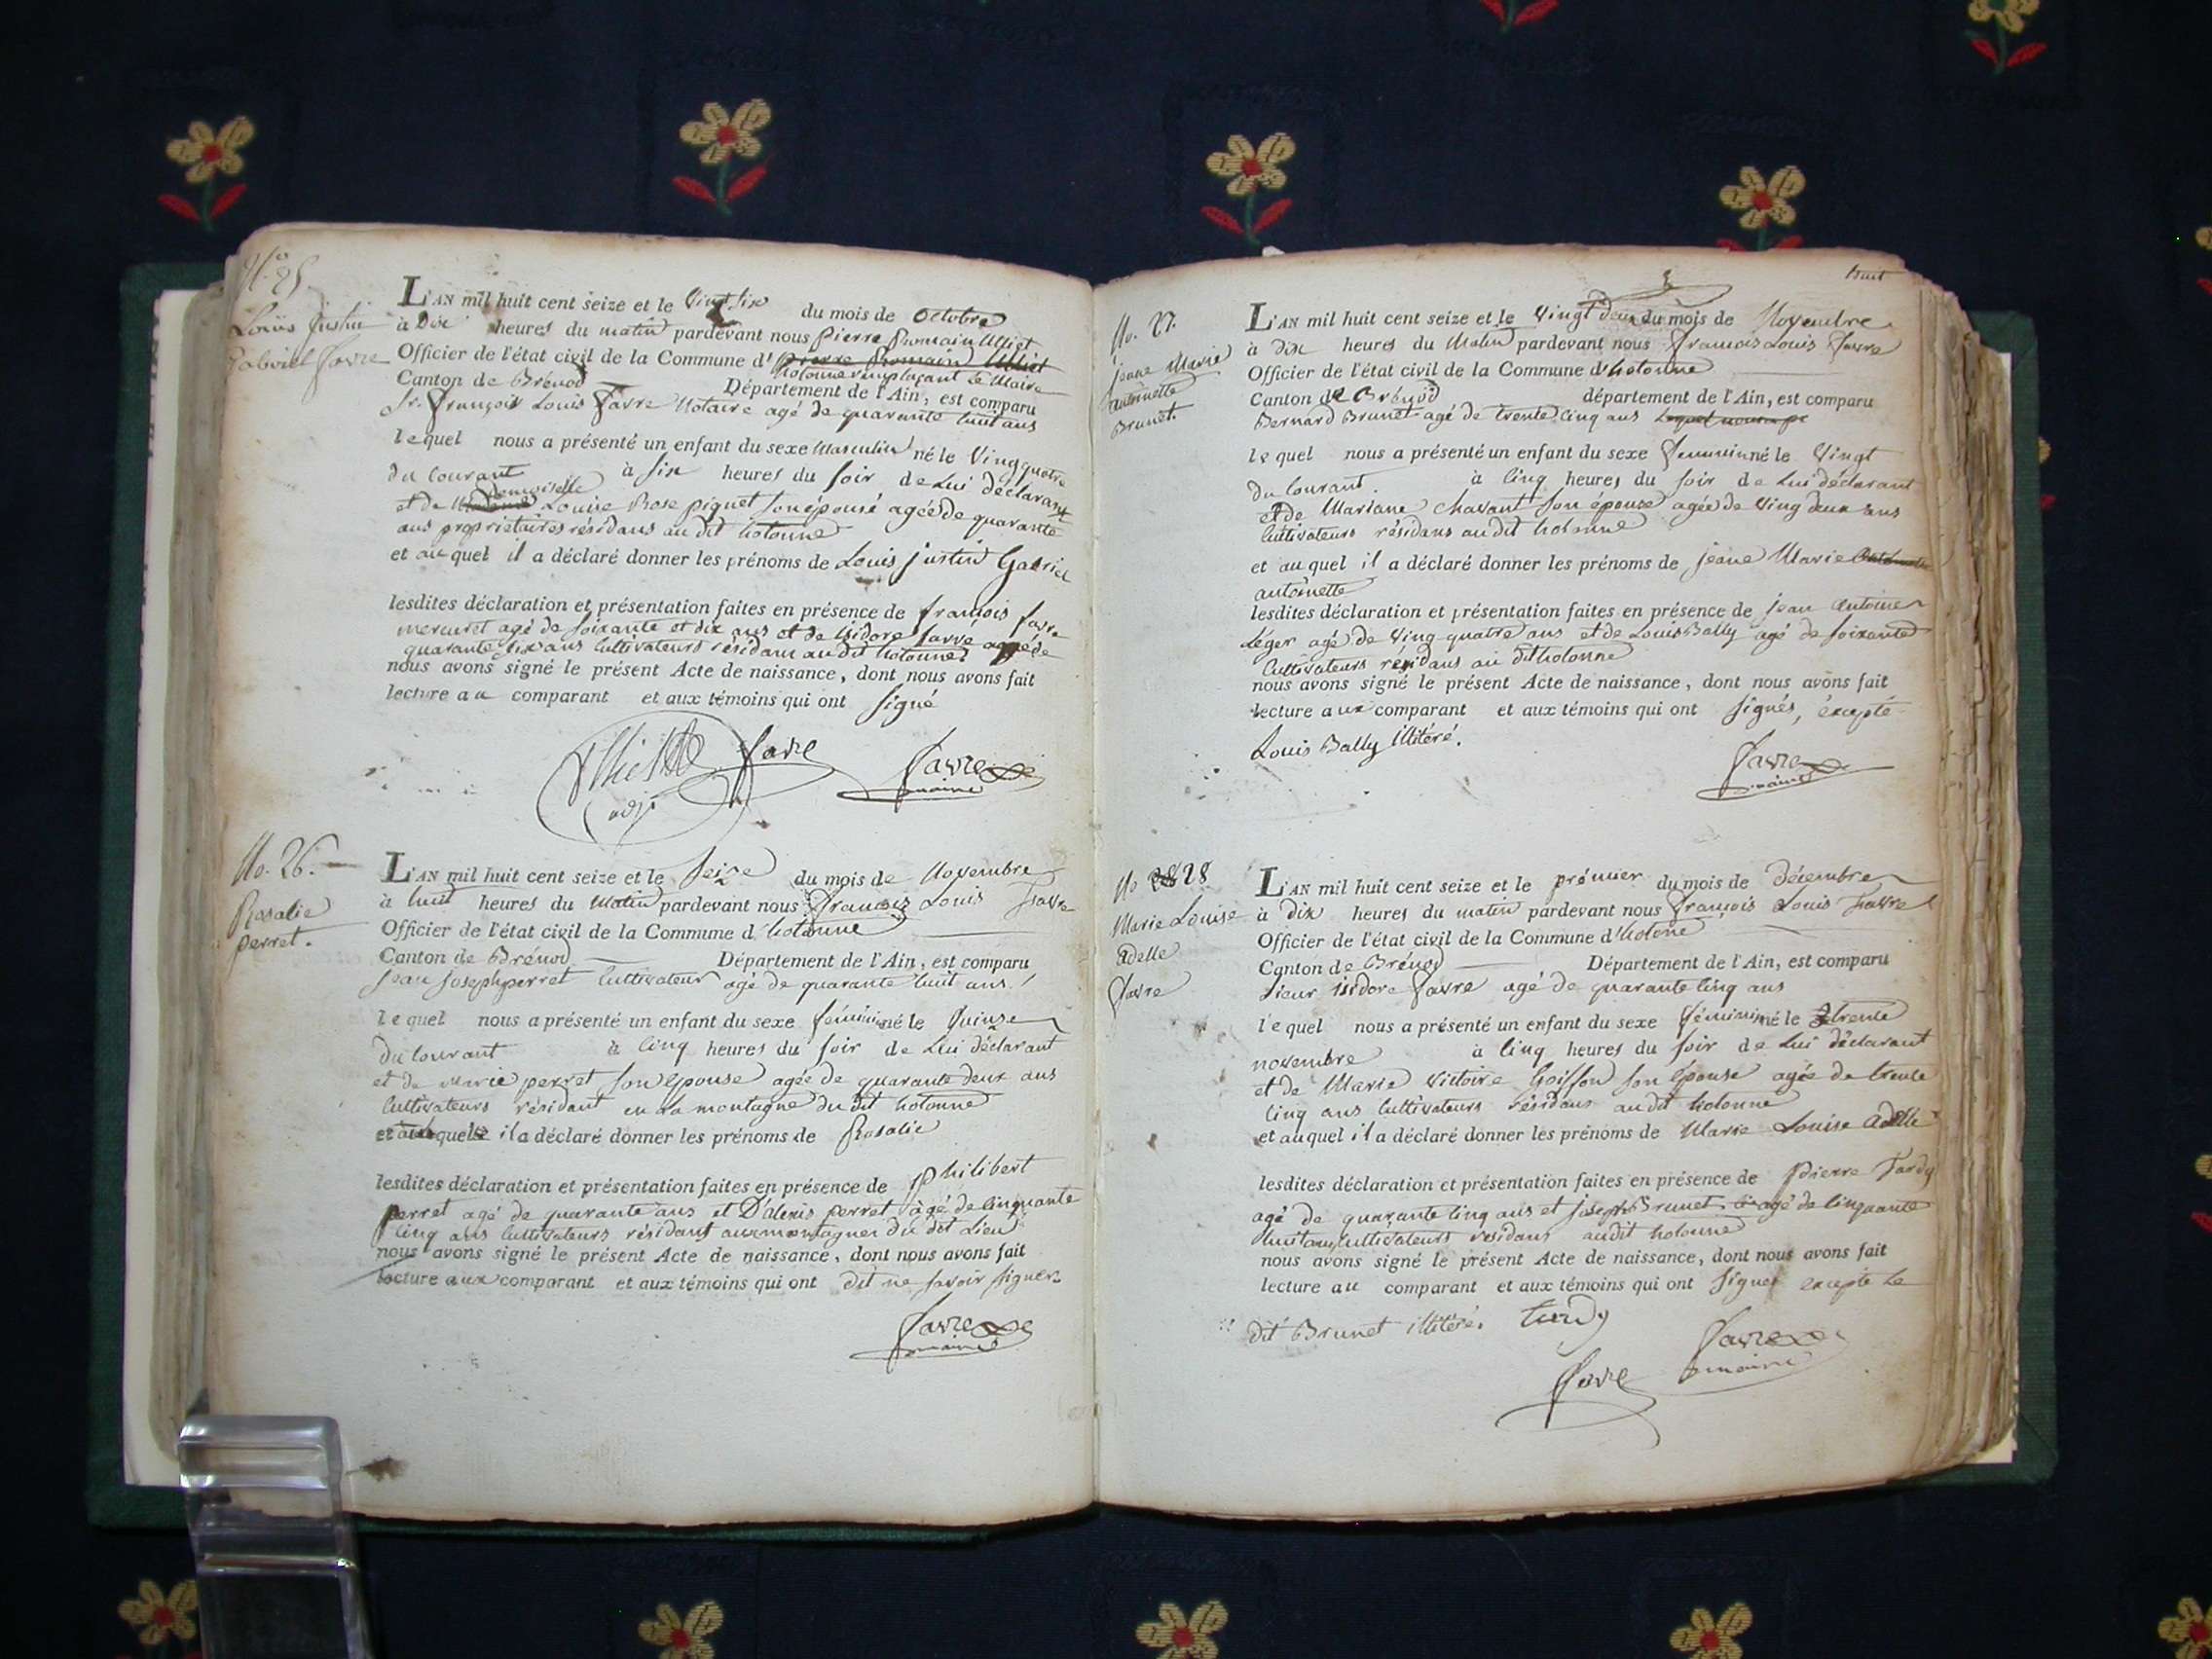 No. 25
Louis Justin
Gabriel Favre
L'AN mil huit cent seize et le Vingt six du mois de Octobre
à Dix heures du matin pardevant nous Pierre Romain Alliet
Officier de l'état civil de la Commune d' Pierre Romain Alliet
hotonne remplaçant le Maire
Canton de Brénod Département de l'Ain, est comparu
Sr. françois Louis Favre Notaire agé de quarante huit ans
lequel nous a présenté un enfant du sexe Masculin né le Vingquatre
du courant à six heures du soir de Lui déclarant
et de Demoiselle Louise Rose piquet son épouse agée de quarante
ans propriétaires résidans au dit hotonne
et au quel il a déclaré donner les prénoms de Louis justin Gabriel
lesdites déclaration et présentation faites en présence de françois favre
mercuret agé de soixante et dix ans et de isidore favre agé de
quarante six ans Cultivateurs résidans au dit hotonne
nous avons signé le présent Acte de naissance, dont nous avons fait
lecture au comparant et aux témoins qui ont signé
adjt favre Favre
maire
No. 26.
Rosalie
perret.
L'AN mil huit cent seize et le Seize du mois de Novembre
à huit heures du Matin pardevant nous françois Louis Favre
Officier de l'état civil de la Commune d hotonne
Canton de Brénod Département de l'Ain, est comparu
Jean Joseph perret Cultivateur agé de quarante huit ans
lequel nous a présenté un enfant du sexe féminin né le Quinze
du Courant à cinq heures du soir de Lui déclarant
et de Marie perret son épouse agée de quarante deux ans
Cultivateurs résidant en La montagne du dit hotonne
et auquel il a déclaré donner les prénoms de Rosalie
lesdites déclaration et présentation faites en présence de Philibert
perret agé de quarante ans et D'alexis perret agé de cinquante
cinq ans Cultivateurs résidans aux montagnes du dit Lieu
nous avons signé le présent Acte de naissance, dont nous avons fait
lecture aux comparant et aux témoins qui ont dit ne savoir signer
Favre
maire
8 huit
No. 27.
jeane Marie
antoinette
Brunet
L'AN mil huit cent seize et le Vingt deux du mois de Novembre
à dix heures du Matin pardevant nous françois Louis Favre
Officier de l'état civil de la Commune d'hotonne
Canton de Brénod département de l'Ain, est comparu
Bernard Brunet agé de trente cinq ans
lequel nous a présenté un enfant du sexe feminin né le Vingt
du Courant. à cinq heures du soir de Lui déclarant
et de Mariane Chavant son épouse agée de Ving deux ans
Cultivateurs résidans au dit hotonne
et au quel il a déclaré donner les prénoms de jeane Marie
antoinette
lesdites déclaration et présentation faites en présence de jean antoine
Léger agé de Ving quatre ans et de Louis Bally agé de soixante
Cultivateurs résidans au dit hotonne
nous avons signé le présent Acte de naissance, dont nous avons fait
lecture aux comparant et aux témoins qui ont signés, excepté
Louis Bally illitéré.
Favre
maire
No 28
Marie Louise
adelle
Favre
L'AN mil huit cent seize et le prémier du mois de décembre
à dix heures du matin pardevant nous françois Louis Favre
Officier de l'état civil de la Commune d'hotone
Canton de Brénod Département de l'Ain, est comparu
Sieur isidore Favre agé de quarante cinq ans
lequel nous a présenté un enfant du sexe féminin né le trente
novembre à cinq heures du soir de Lui déclarant
et de Marie Victoire Goiffon son épouse agée de trente
cinq ans Cultivateurs résidans au dit hotonne
et auquel il a déclaré donner les prénoms de Marie Louise adelle
lesdites déclaration et présentation faites en présence de Pierre Tardy
agé de quarante cinq ans et joseph Brunet agé de cinquante
huit ans, Cultivateurs residans au dit hotonne
nous avons signé le présent Acte de naissance, dont nous avons fait
lecture au comparant et aux témoins qui ont signes excepté Le
dit Brunet illitéré. tardy
Favre
maire
favre